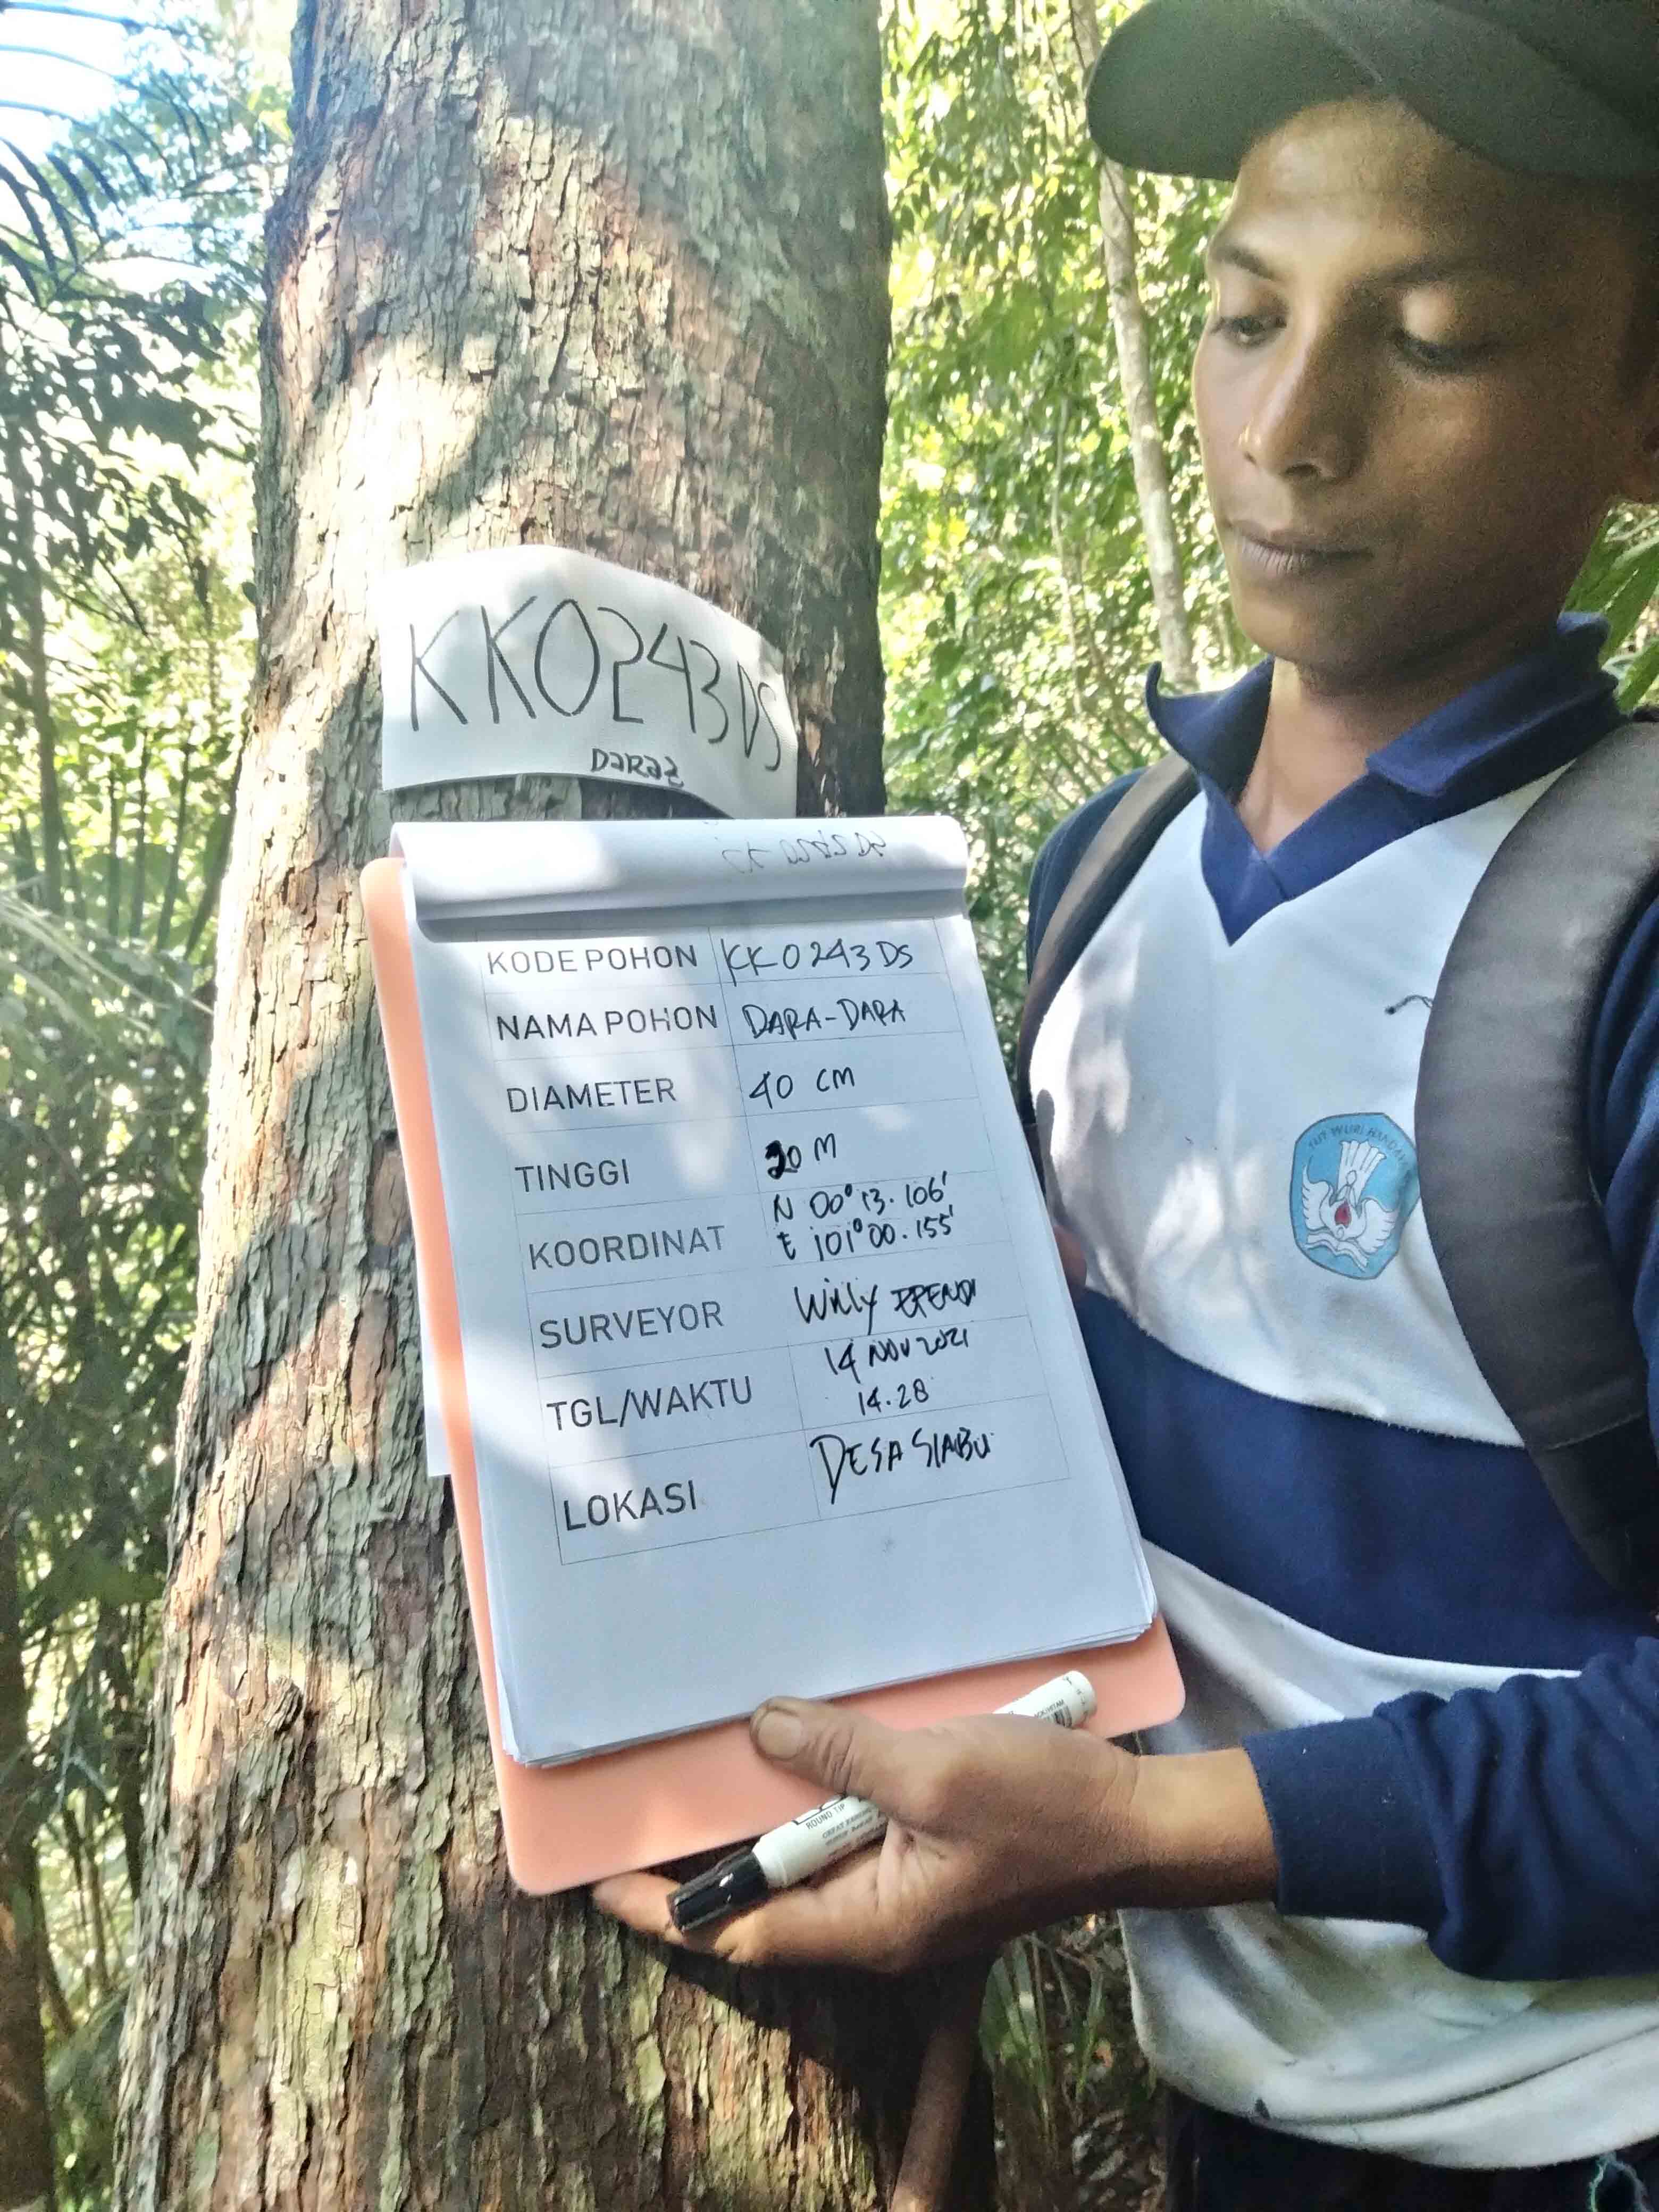 KK0243DS
DARA2
KODE POHON KK0243DS
NAMA POHON DARA-DARA
DIAMETER 40 CM
TINGGI 20 M
KOORDINAT N 00° 13. 106'
E 101° 00. 155'
SURVEYOR Willy EPENDI
TGL/WAKTU 14 NOV 2021
14.28
LOKASI DESA SIABU
TUT WURI HANDAYANI
ROUND TIP